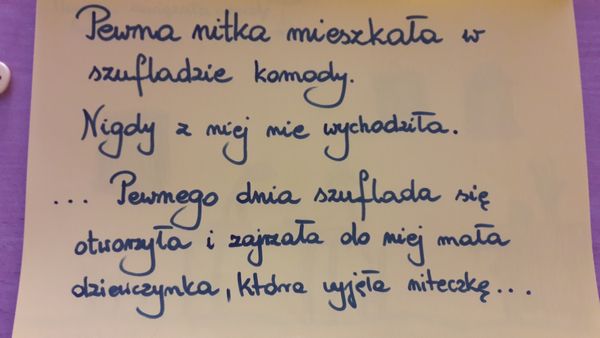 Pewna nitka mieszkała w
szufladzie komody.
Nigdy z niej nie wychodziła.
... Pewnego dnia szuflada się
otworzyła i zajrzała do niej mała
dziewczynka, która wyjęła niteczkę...